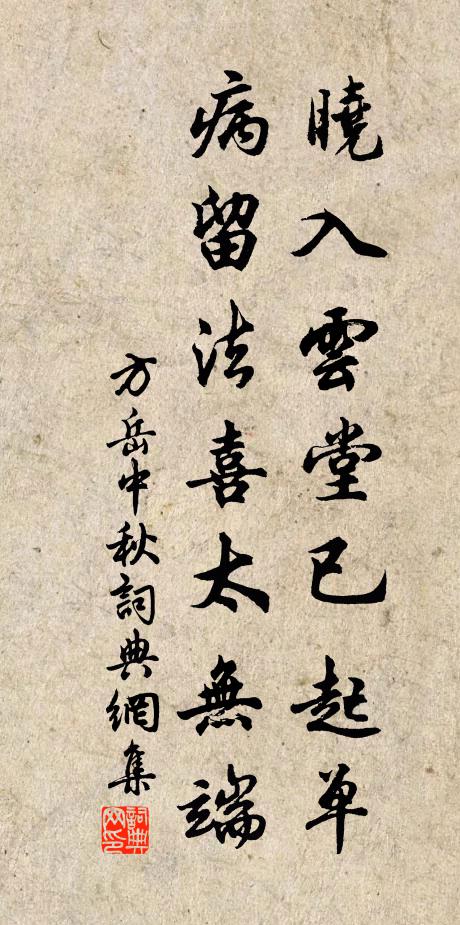 曉入雲堂已起單
病留法喜太無端
方岳中秋詞典網集
詞典網印